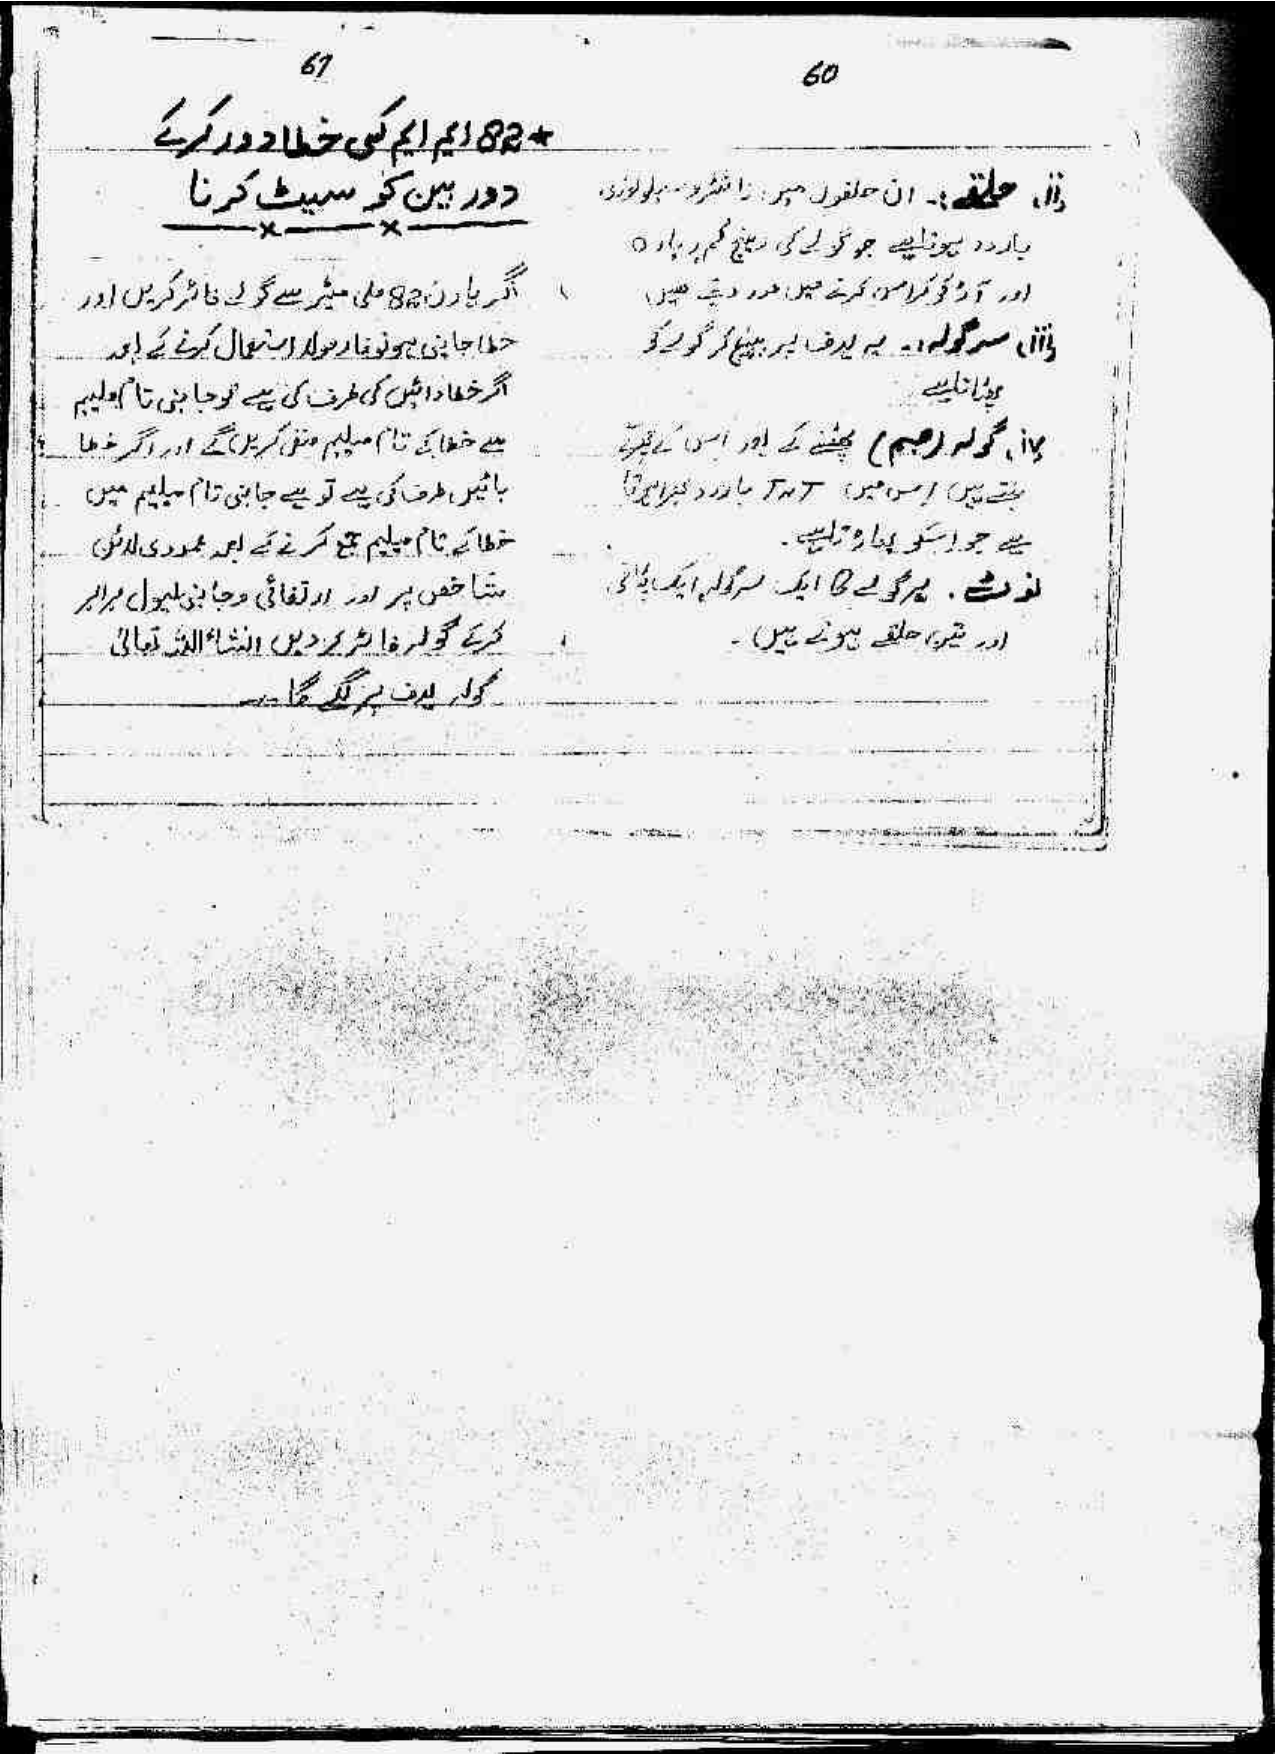 60
(ii) حلقے:۔ ان حلقوں میں نائٹرو سیلولوزی
بارود ہوتا ہے جو گولے کی رینج کم زیادہ
اور آڑ کو کراس کرنے میں مدد دیتے ہیں
(iii) سرگولہ:۔ یہ ہدف پر پہنچ کر گولے کو
پھٹاتا ہے
(iv) گولہ (جسم) پھٹنے کے بعد اس کے ٹکڑے
بنتے ہیں اس میں TNT بارود بھرا ہوتا
ہے جو اسکو پھاڑتا ہے۔
نوٹ۔ ہر گولے کا ایک سرگولہ ایک
اور تین حلقے ہوتے ہیں۔
61
* 82 ایم ایم کی خطا دور کرکے
دوربین کو سیٹ کرنا
اگر ہاون 82 ملی میٹر سے گولے فائر کریں اور
خطا جانبی ہو تو فارمولا استعمال کرنے کے بعد
اگر خطا دائیں کی طرف کی ہے تو جانبی تام میلیم
سے خطا کے تام میلیم منفی کریں گے اور اگر خطا
بائیں طرف کی ہے تو جانبی تام میلیم میں
خطا کے تام میلیم جمع کرنے کے بعد عمودی لائن
شاخص پر اور ارتفائی و جانبی لیول برابر
کرکے گولہ فائر کر دیں انشاء اللہ تعالیٰ
گولہ ہدف پر لگے گا۔